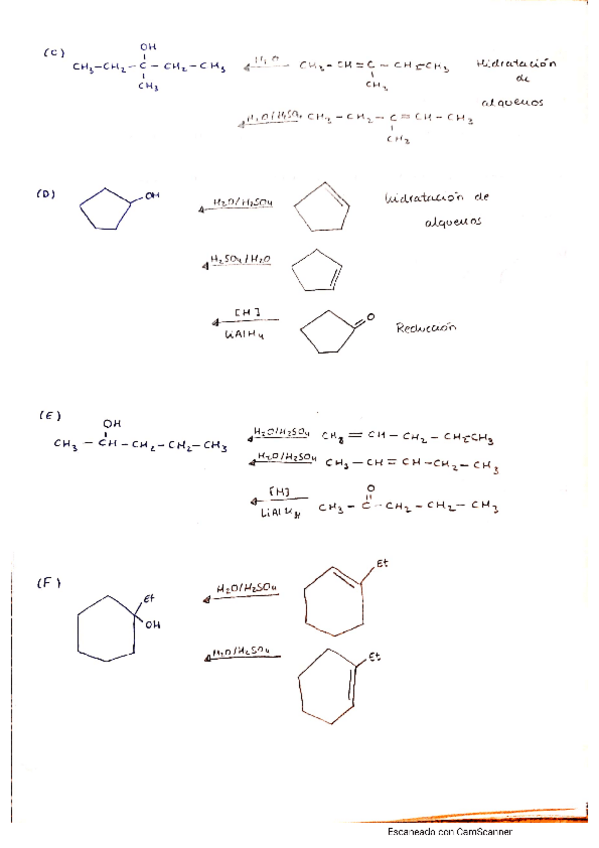 (C) CH3-CH2-C-CH2-CH3
OH
CH3
H2O
CH3-CH=C-CH2-CH3
CH3
Hidratación
de
alquenos
H2O/H2SO4 CH3-CH2-C=CH-CH3
CH3
(D)
OH
H2O/H2SO4
hidratación de
alquenos
H2SO4/H2O
[H]
LiAlH4
O
Reducción
(E)
OH
CH3-CH-CH2-CH2-CH3
H2O/H2SO4 CH2=CH-CH2-CH2-CH3
H2O/H2SO4 CH3-CH=CH-CH2-CH3
[H]
LiAlH4
O
CH3-C-CH2-CH2-CH3
(F)
Et
OH
H2O/H2SO4
Et
H2O/H2SO4
Et
Escaneado con CamScanner